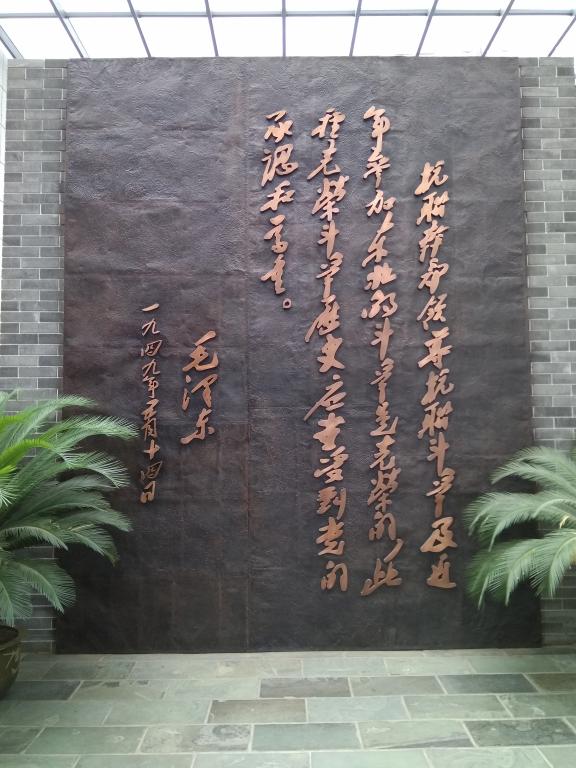 抗联幹部领导抗联斗争及近
年参加东北的斗争是光榮的，此
种光榮斗争歷史应当受到党的
承认和尊重。
毛泽东
一九四九年五月十四日